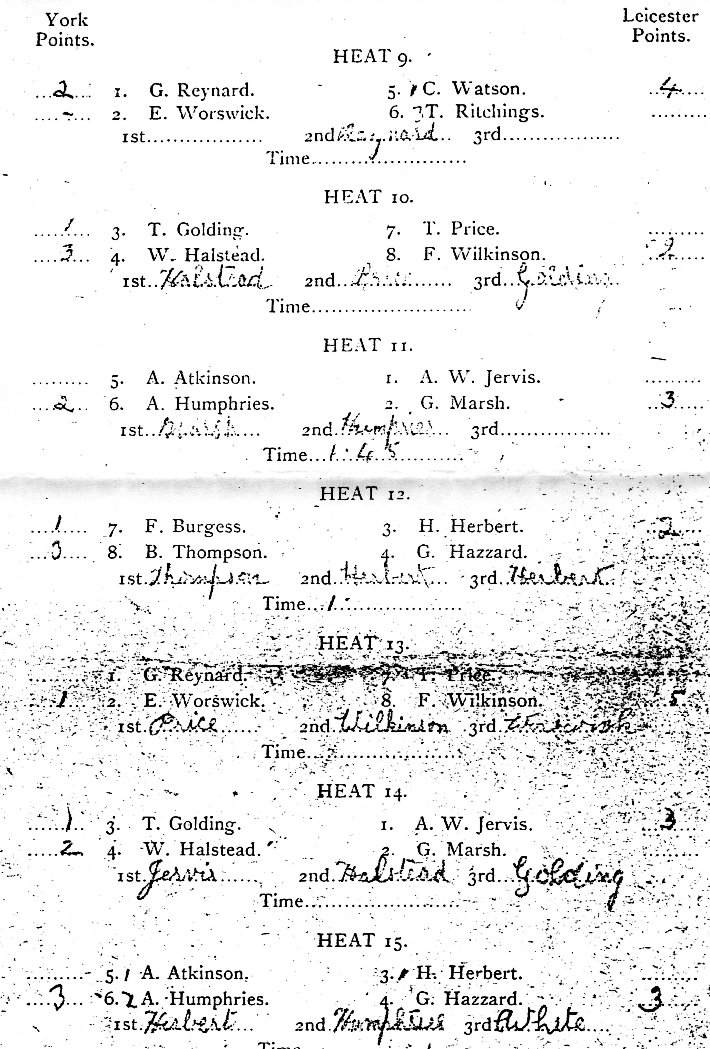 York Points. Leicester Points.
HEAT 9.
2 1. G. Reynard. 5. 1 C. Watson. 4
- 2. E. Worswick. 6. T. Ritchings.
1st................. 2nd Reynard 3rd..................
Time.......................
HEAT 10.
1 3. T. Golding. 7. T. Price.
3 4. W. Halstead. 8. F. Wilkinson. 2
1st Halstead 2nd Price 3rd Golding
Time.......................
HEAT 11.
5. A. Atkinson. 1. A. W. Jervis.
2 6. A. Humphries. 2. G. Marsh. 3
1st Marsh 2nd Humphries 3rd.................
Time 1.45
HEAT 12.
1 7. F. Burgess. 3. H. Herbert. 2
3 8. B. Thompson. 4. G. Hazzard.
1st Thompson 2nd Herbert 3rd Herbert
Time 1
HEAT 13.
1. G. Reynard. 7. T. Price.
1 2. E. Worswick. 8. F. Wilkinson. 5
1st Price 2nd Wilkinson 3rd
Time.......................
HEAT 14.
1 3. T. Golding. 1. A. W. Jervis. 3
2 4. W. Halstead. 2. G. Marsh.
1st Jervis 2nd Halstead 3rd Golding
Time.......................
HEAT 15.
5. 1 A. Atkinson. 3. H. Herbert.
3 6. 2 A. Humphries. 4. G. Hazzard. 3
1st Herbert 2nd Humphries 3rd White
Time